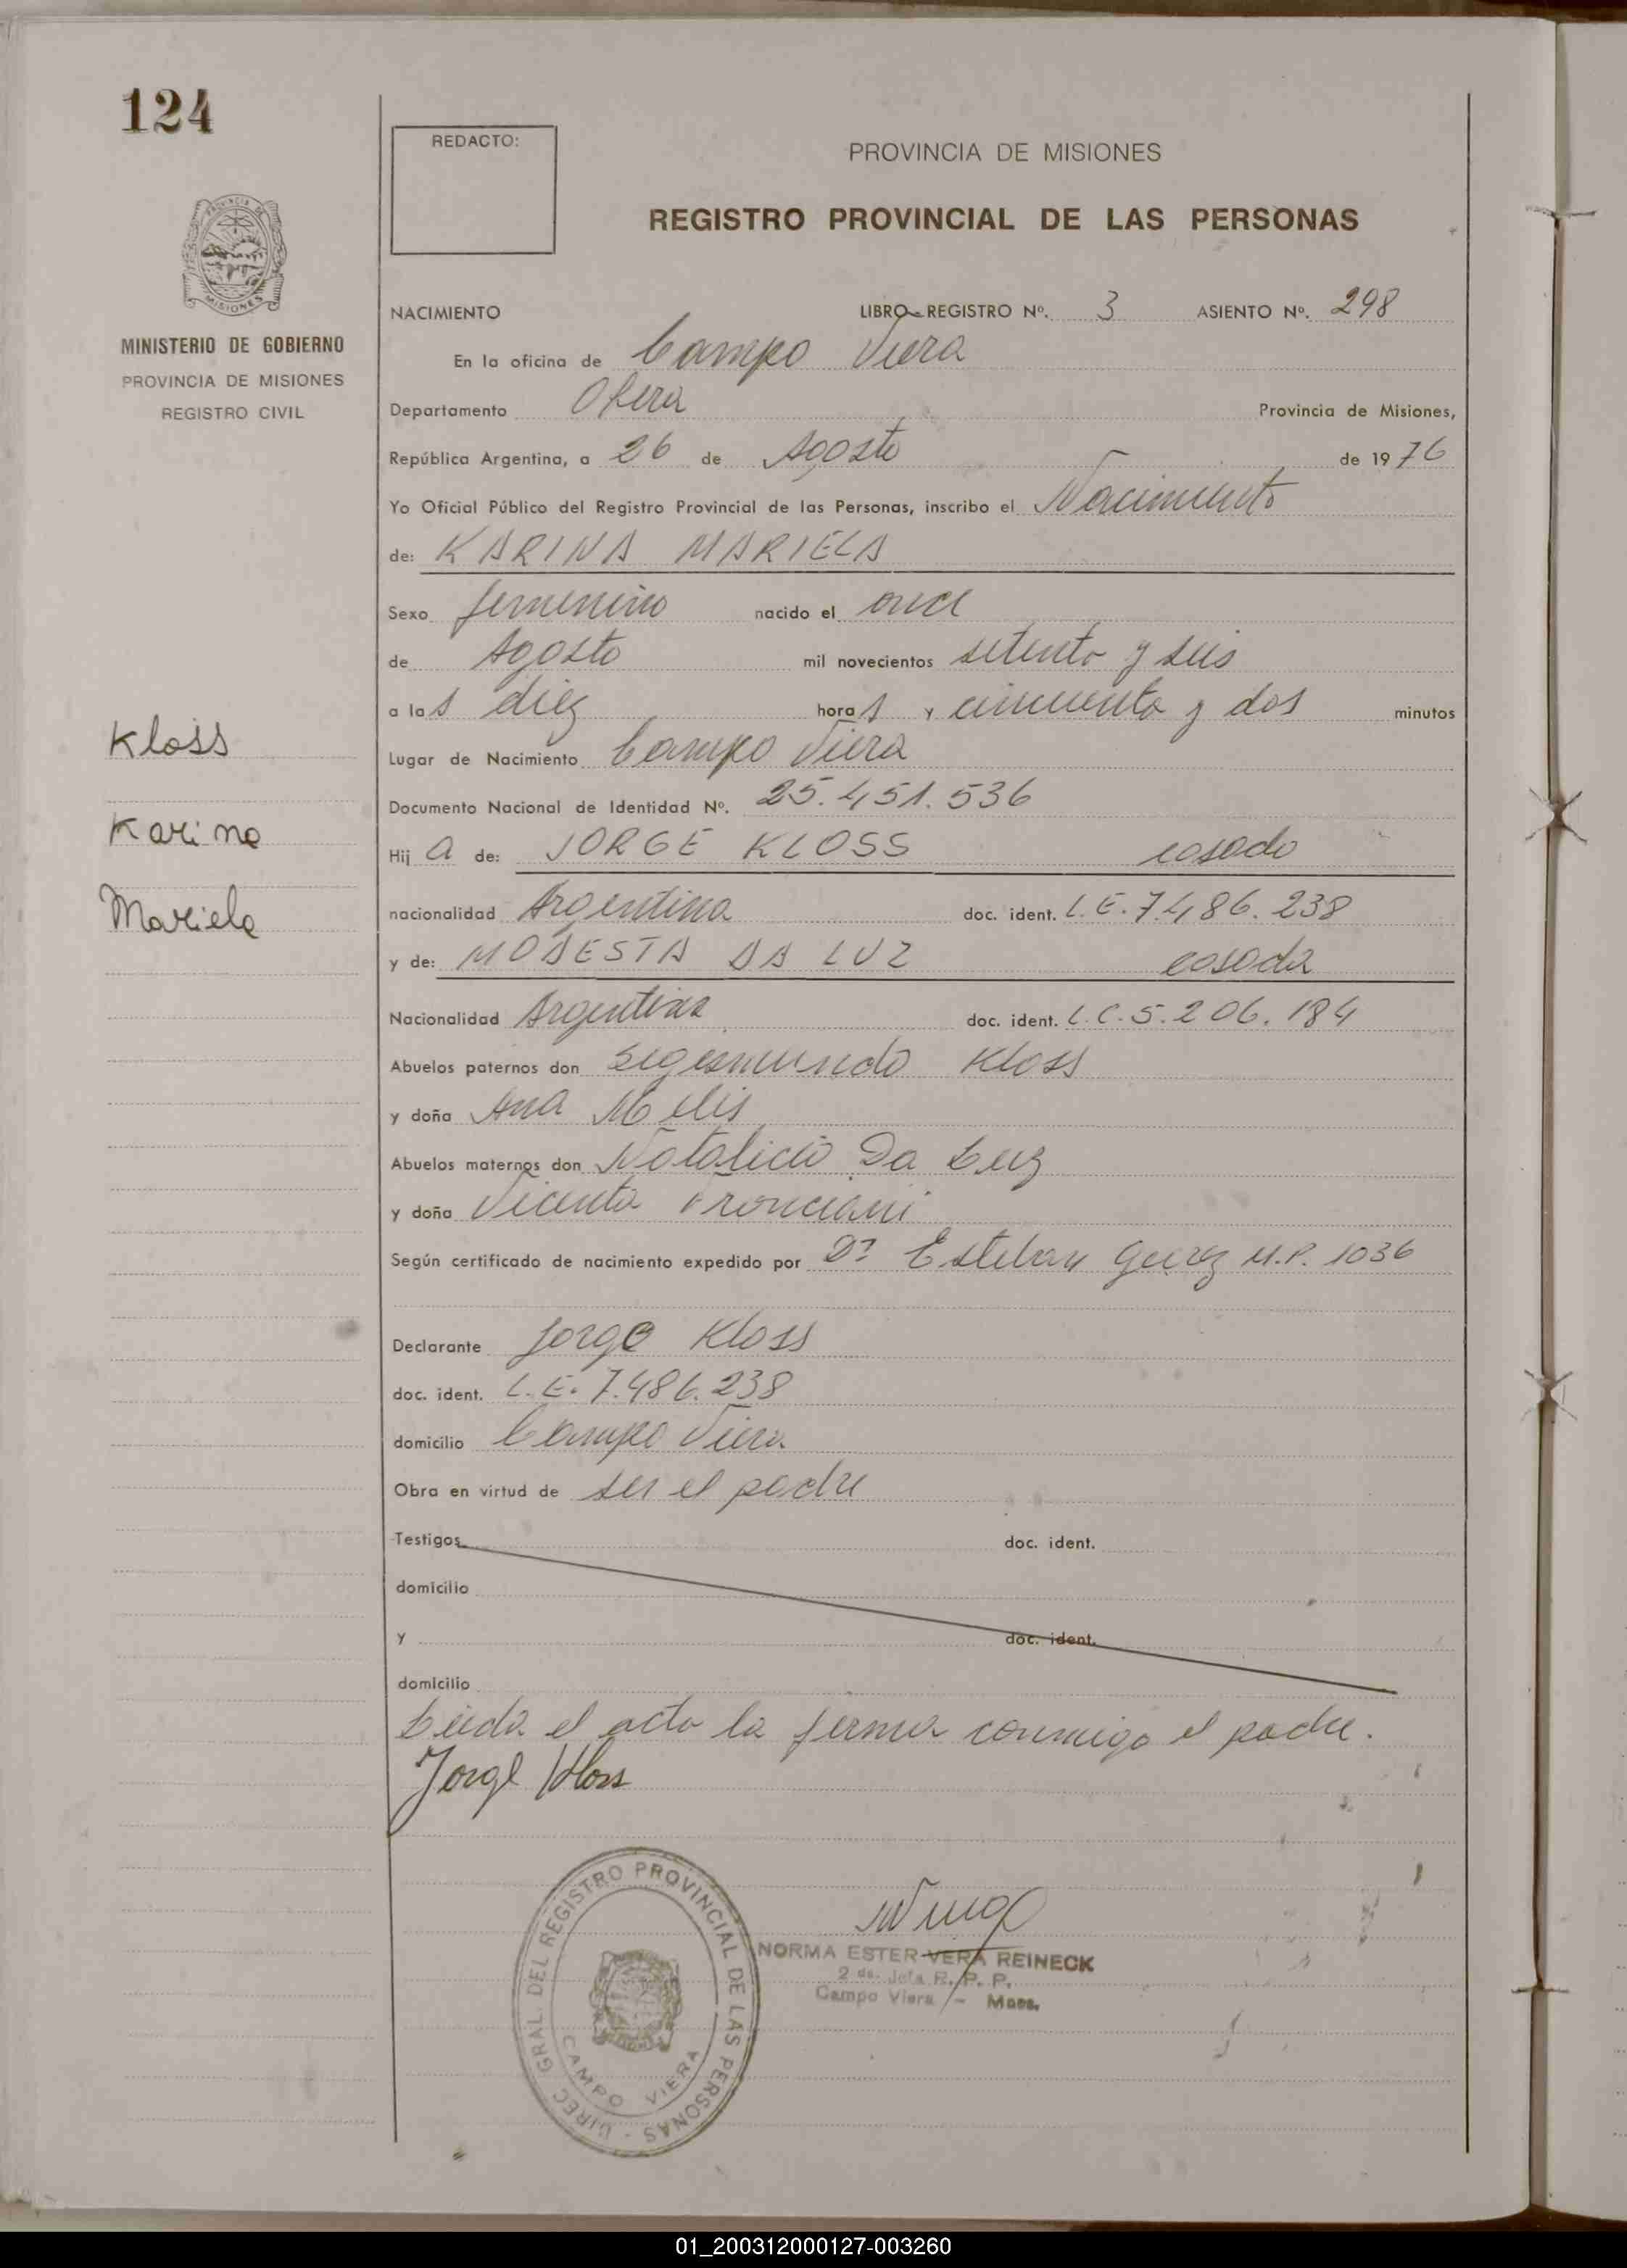 124
REDACTO:
PROVINCIA DE MISIONES
REGISTRO PROVINCIAL DE LAS PERSONAS
MINISTERIO DE GOBIERNO
PROVINCIA DE MISIONES
REGISTRO CIVIL
NACIMIENTO LIBRO-REGISTRO Nº. 3 ASIENTO Nº. 298
En la oficina de Campo Viera
Departamento Obera Provincia de Misiones,
República Argentina, a 26 de Agosto de 1976
Yo Oficial Público del Registro Provincial de las Personas, inscribo el Nacimiento
de: KARINA MARIELA
Sexo femenino nacido el once
de Agosto mil novecientos setenta y seis
a las diez horas y cincuenta y dos minutos
Lugar de Nacimiento Campo Viera
Documento Nacional de Identidad Nº. 25.451.536
Hija de: JORGE KLOSS casado
nacionalidad Argentina doc. ident. L.E. 7.486.238
y de: MODESTA DA LUZ casada
Nacionalidad Argentina doc. ident. L.C. 5.206.184
Abuelos paternos don Segismundo Kloss
y doña Ana Melis
Abuelos maternos don Natalicio Da Luz
y doña Vicenta
Según certificado de nacimiento expedido por Dr Esteban M.P. 1036
Declarante Jorge Kloss
doc. ident. L.E. 7.486.238
domicilio Campo Viera
Obra en virtud de ser el padre
Testigos doc. ident.
domicilio
y doc. ident.
domicilio
Leida el acta la firma conmigo el padre.
Jorge Kloss
Kloss
Karina
Mariela
DIREC. GRAL. DEL REGISTRO PROVINCIAL DE LAS PERSONAS
CAMPO VIERA
NORMA ESTER VERA REINECK
2 da. Jefa R. P. P.
Campo Viera - Mnes.
01_200312000127-003260